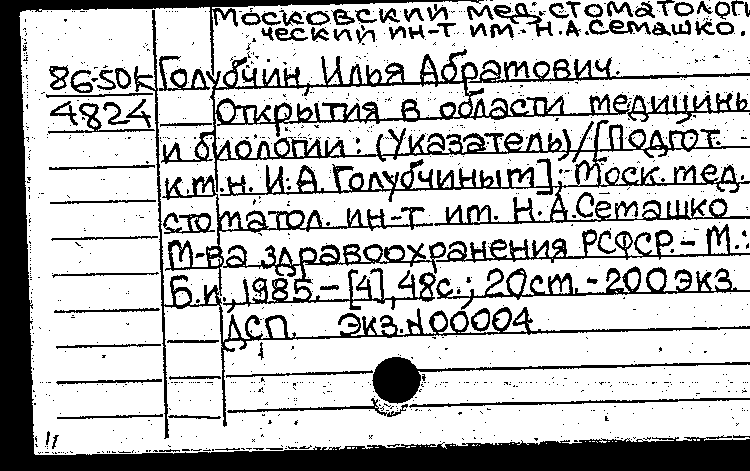 Московский мед. стоматологи
ческий ин-т им. Н.А.Семашко.
86-50к Голубчин, Илья Абрамович.
4824 Открытия в области медицины
и биологии: (Указатель)/[Подгот.
к.м.н. И.А. Голубчиным]; Моск.мед.
стоматол. ин-т им. Н.А.Семашко
М-ва здравоохранения РСФСР.- М.:
Б.и., 1985.- [4], 48с.; 20см. - 200экз.
ДСП. Экз.N00004